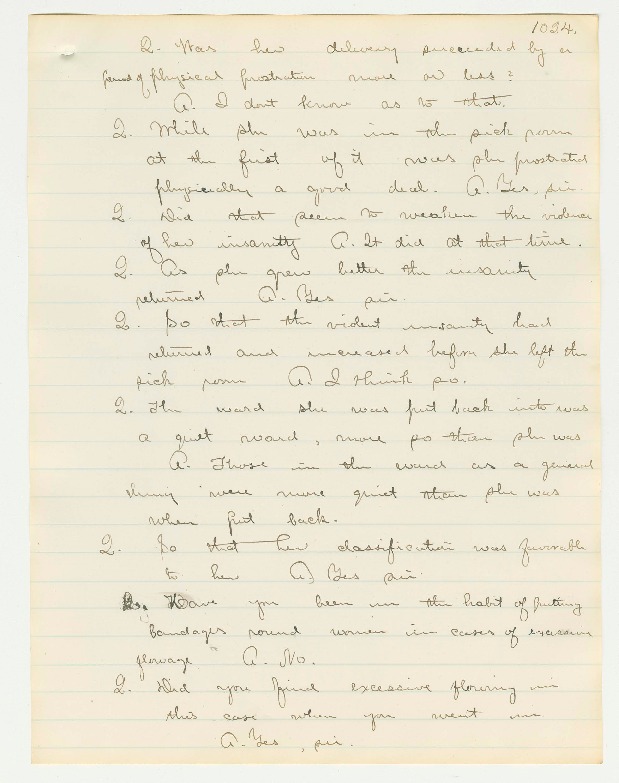 1024.
Q. Was her delivery succeeded by a
period of physical prostration more or less?
A. I dont know as to that.
Q. While she was in the sick room
at the first of it was she prostrated
physically a good deal. A. Yes, sir.
Q. Did that seem to weaken the violence
of her insanity A. It did at that time.
Q. As she grew better the insanity
returned A. Yes sir.
Q. So that the violent insanity had
returned and increased before she left the
sick room A. I think so.
Q. The ward she was put back into was
a quiet ward, more so than she was
A. Those in the ward as a general
thing were more quiet than she was
when put back.
Q. So that her classification was favorable
to her A. Yes sir.
Q. Have you been in the habit of putting
bandages round women in cases of excessive
flowage A. No.
Q. Did you find excessive flowing in
this case when you went in
A. Yes, sir.